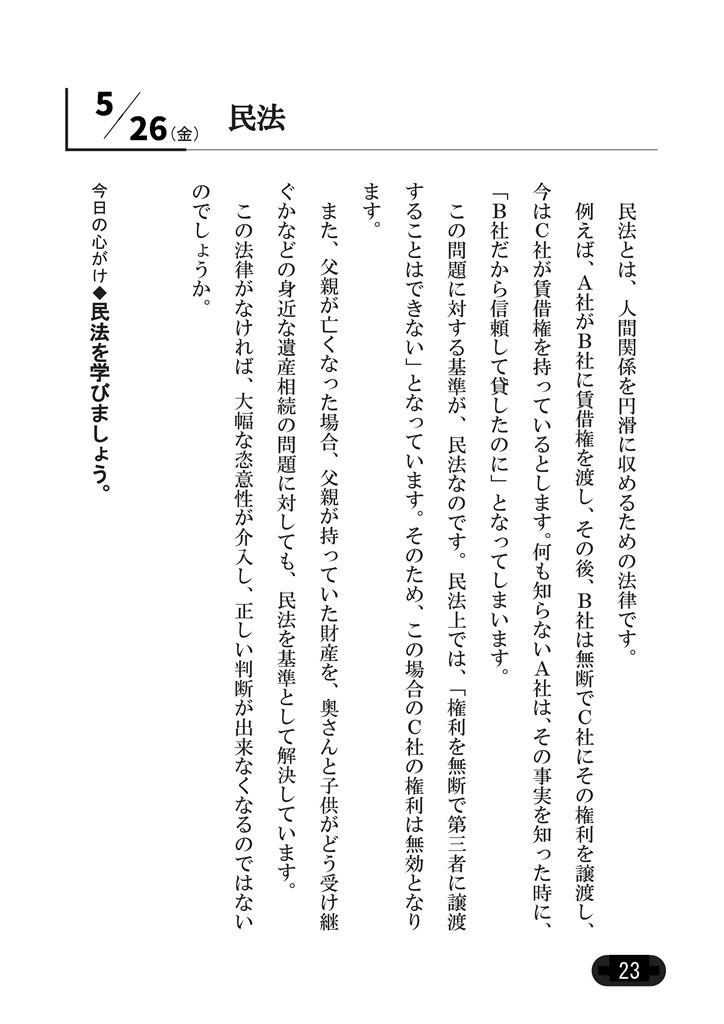 5/26(金)
民法
民法とは、人間関係を円滑に収めるための法律です。
例えば、A社がB社に賃借権を渡し、その後、B社は無断でC社にその権利を譲渡し、
今はC社が賃借権を持っているとします。何も知らないA社は、その事実を知った時に、
「B社だから信頼して貸したのに」となってしまいます。
この問題に対する基準が、民法なのです。民法上では、「権利を無断で第三者に譲渡
することはできない」となっています。そのため、この場合のC社の権利は無効となり
ます。
また、父親が亡くなった場合、父親が持っていた財産を、奥さんと子供がどう受け継
ぐかなどの身近な遺産相続の問題に対しても、民法を基準として解決しています。
この法律がなければ、大幅な恣意性が介入し、正しい判断が出来なくなるのではない
のでしょうか。
今日の心がけ◆民法を学びましょう。
23